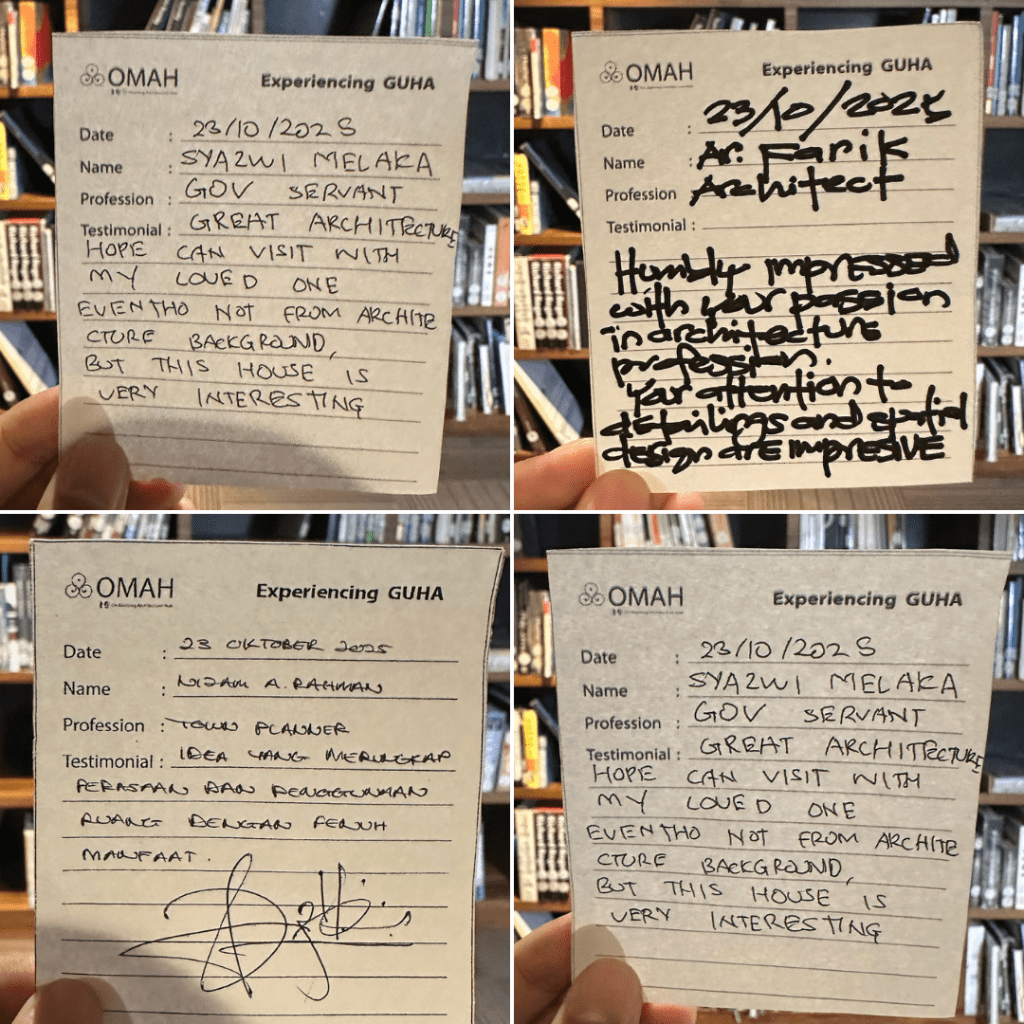 OMAH
Experiencing GUHA
Date : 23/10/2025
Name : SYAZWI MELAKA
Profession : GOV SERVANT
Testimonial : GREAT ARCHITECTURE
HOPE CAN VISIT WITH
MY LOVED ONE
EVENTHO NOT FROM ARCHITE
CTURE BACKGROUND,
BUT THIS HOUSE IS
VERY INTERESTING
OMAH
Experiencing GUHA
Date : 23/10/2025
Name : Ar. Farik
Profession Architect
Testimonial :
Humbly impressed
with your passion
in architecture
profession.
Your attention to
detailings and spatial
design are impresive
OMAH
Experiencing GUHA
Date : 23 OKTOBER 2025
Name : NIZAM A. RAHMAN
Profession : TOWN PLANNER
Testimonial : IDEA YANG MERUNGKAP
PERASAAN DAN PENGGUNAAN
RUANG DENGAN PENUH
MANFAAT.
OMAH
Experiencing GUHA
Date : 23/10/2025
Name : SYAZWI MELAKA
Profession : GOV SERVANT
Testimonial : GREAT ARCHITECTURE
HOPE CAN VISIT WITH
MY LOVED ONE
EVENTHO NOT FROM ARCHITE
CTURE BACKGROUND,
BUT THIS HOUSE IS
VERY INTERESTING